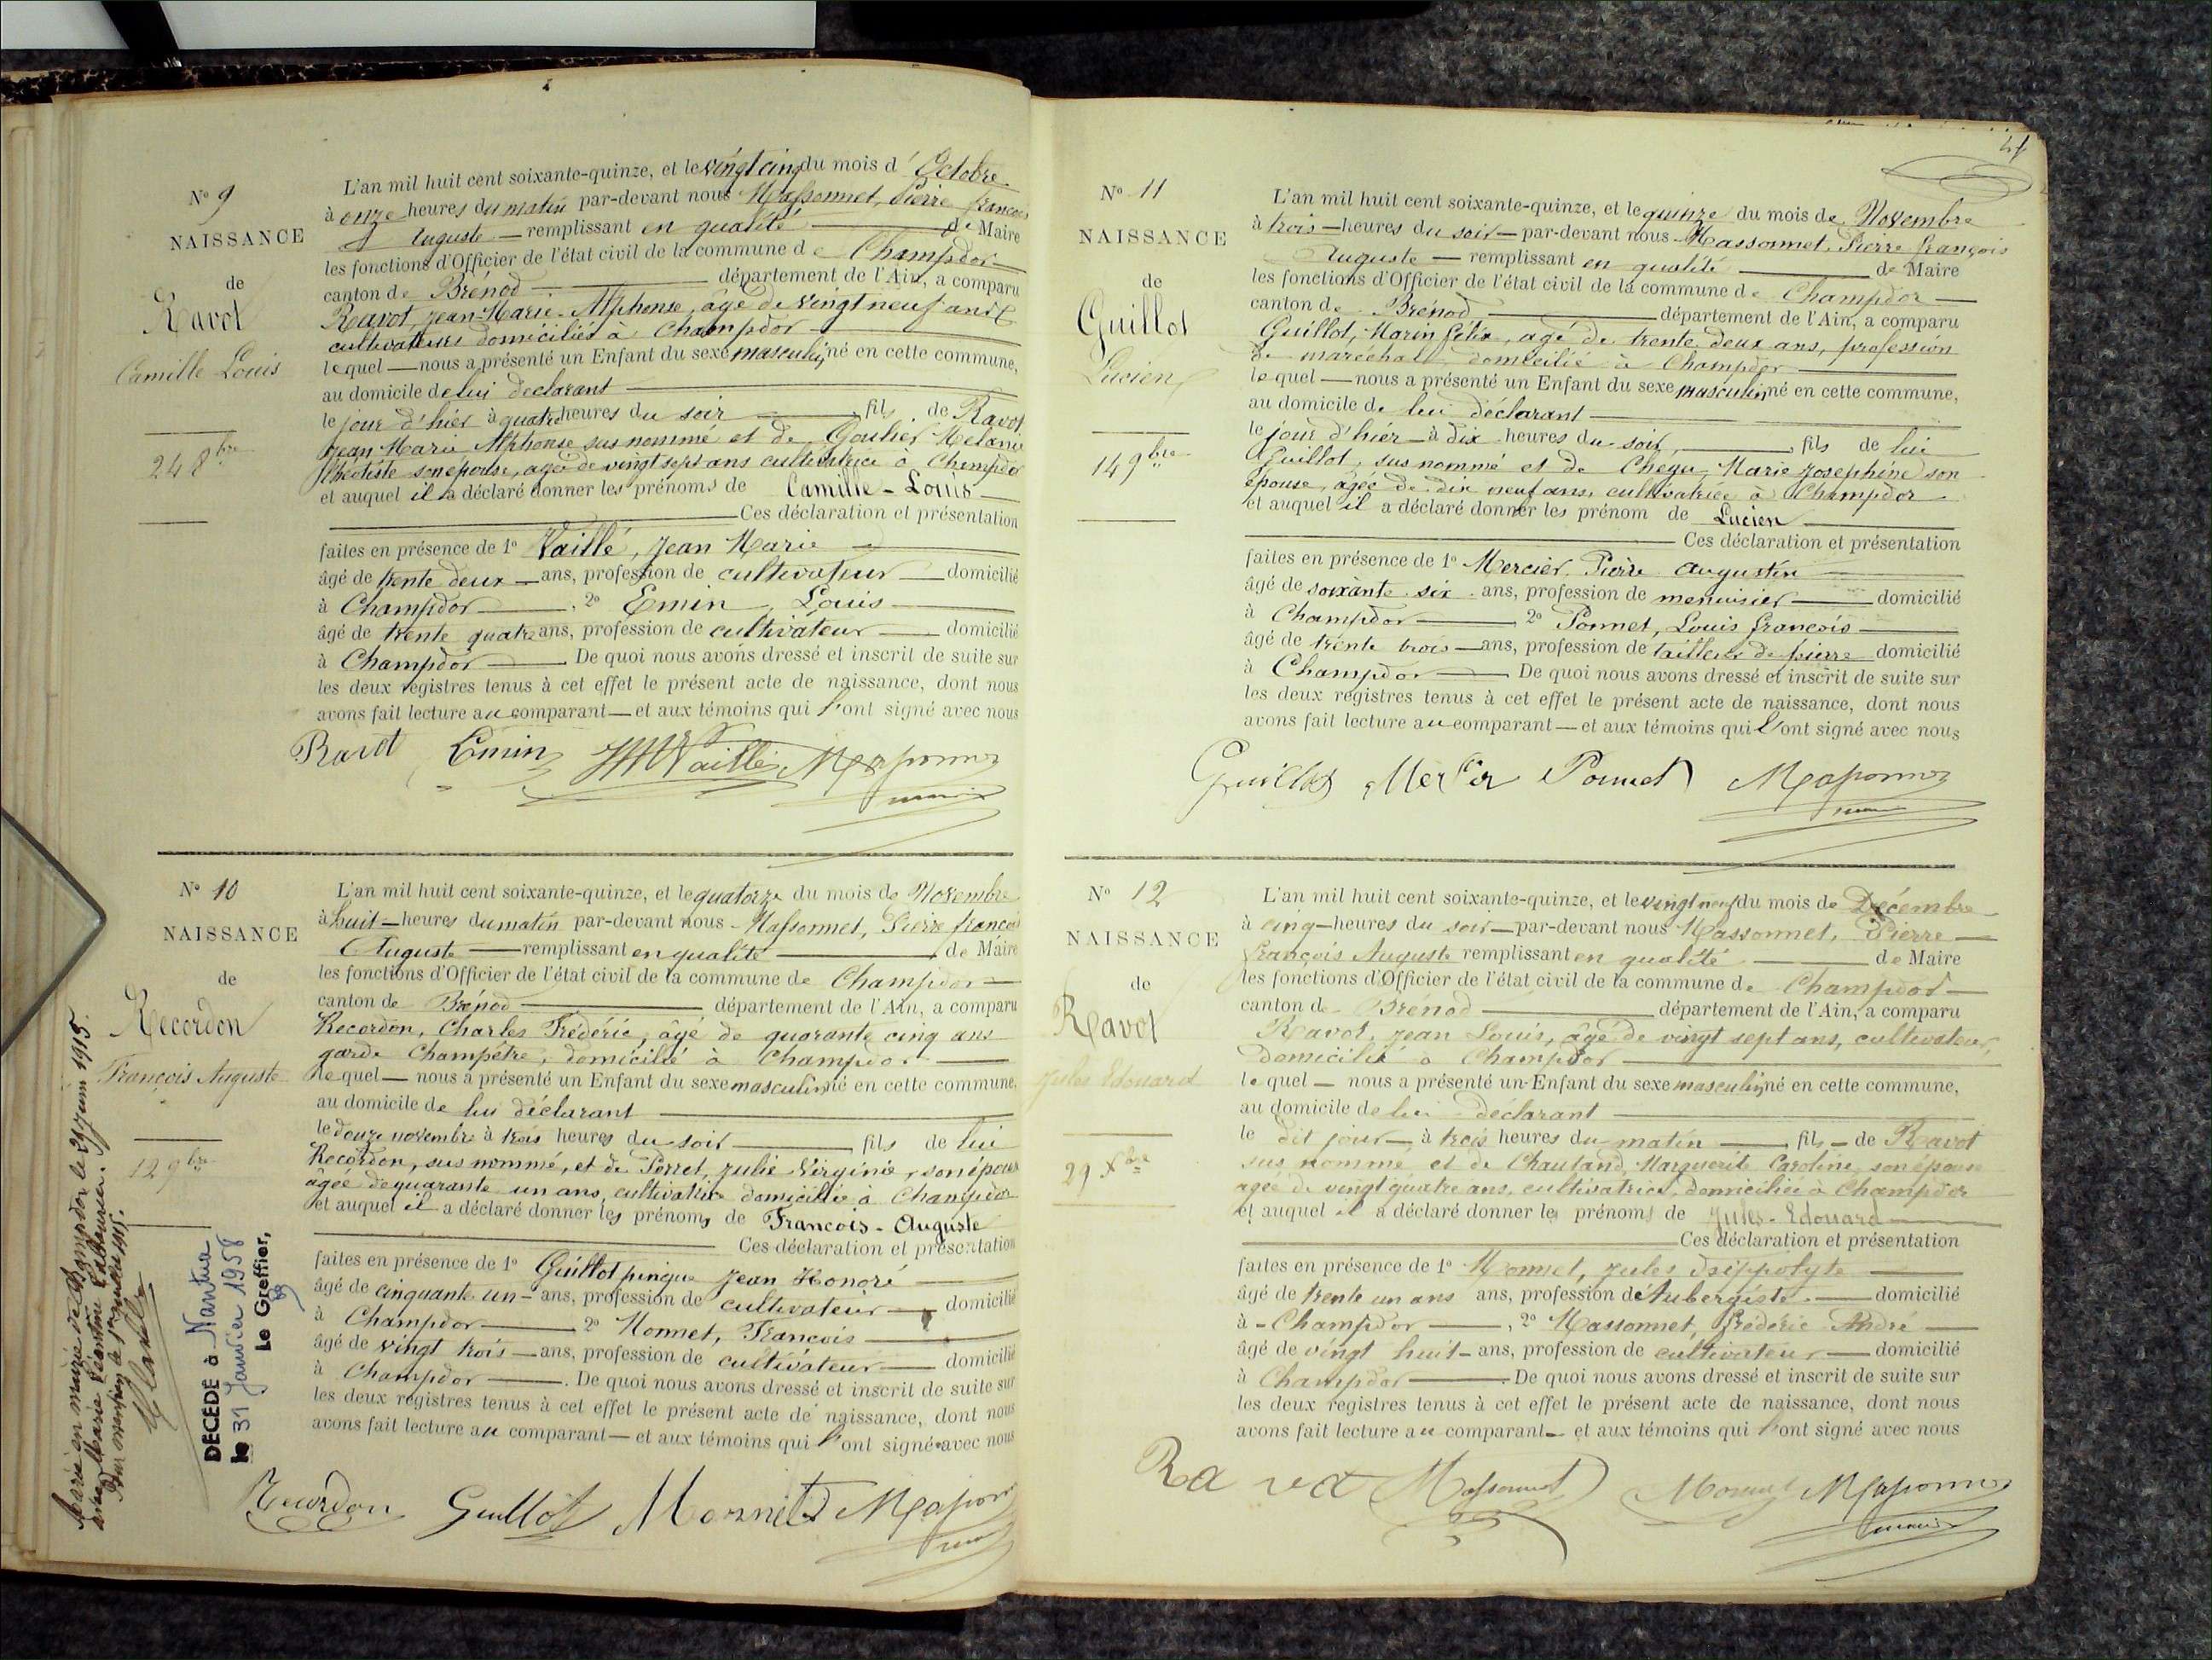 N° 9
NAISSANCE
de
Ravot
Camille Louis
24 8bre
L'an mil huit cent soixante-quinze, et le vingt cinq du mois d'Octobre
à onze heures du matin par-devant nous Massonnet, Pierre françois
Auguste — remplissant en qualité — de Maire
les fonctions d'Officier de l'état civil de la commune de Champdor
canton de Brénod — département de l'Ain, a comparu
Ravot, Jean-Marie-Alphonse, âgé de vingt neuf ans
cultivateurs domiciliés à Champdor
lequel — nous a présenté un Enfant du sexe masculin, né en cette commune,
au domicile de lui declarant
le jour d'hier à quatre heures du soir — fils de Ravot
Jean-Marie Alphonse sus nommé et de Goulier Melanie
son épouse, agée de vingt sept ans cultivatrice à Champdor
et auquel il a déclaré donner les prénoms de Camille-Louis
Ces déclaration et présentation
faites en présence de 1° Vaillé, Jean Marie
âgé de trente deux — ans, profession de cultivateur — domicilié
à Champdor — . 2° Emin, Louis
âgé de trente quatre ans, profession de cultivateur — domicilié
à Champdor — De quoi nous avons dressé et inscrit de suite sur
les deux registres tenus à cet effet le présent acte de naissance, dont nous
avons fait lecture au comparant — et aux témoins qui l'ont signé avec nous
Ravot Emin Vaillé Massonnet
maire
N° 10
NAISSANCE
de
Recordon
François Auguste
12 9bre
Marié en mairie de Champdor le 29 juin 1915.
avec Marie Léontine
DÉCÉDÉ à Nantua
le 31 Janvier 1958
Le Greffier,
L'an mil huit cent soixante-quinze, et le quatorze du mois de Novembre
à huit — heures du matin par-devant nous Massonnet, Pierre françois
Auguste — remplissant en qualité — de Maire
les fonctions d'Officier de l'état civil de la commune de Champdor
canton de Brénod — département de l'Ain, a comparu
Recordon, Charles Frédéric, âgé de quarante cinq ans
garde Champêtre, domicilié à Champdor
lequel — nous a présenté un Enfant du sexe masculin né en cette commune,
au domicile de lui déclarant
le douze novembre à trois heures du soir — fils de lui
Recordon, sus nommé, et de Perret, Julie Virginie, son épouse
âgée de quarante un ans, cultivatrice domiciliée à Champdor
et auquel il a déclaré donner les prénoms de François-Auguste
Ces déclaration et présentation
faites en présence de 1° Guillot pingue Jean Honoré
âgé de cinquante un — ans, profession de cultivateur — domicilié
à Champdor — 2° Monnet, François
âgé de vingt trois — ans, profession de cultivateur — domicilié
à Champdor — . De quoi nous avons dressé et inscrit de suite sur
les deux registres tenus à cet effet le présent acte de naissance, dont nous
avons fait lecture au comparant — et aux témoins qui l'ont signé avec nous
Recordon Guillot Monnet Massonnet
maire
N° 11
NAISSANCE
de
Guillot
Lucien
14 9bre
L'an mil huit cent soixante-quinze, et le quinze du mois de Novembre
à trois — heures du soir — par-devant nous Massonnet, Pierre françois
Auguste — remplissant en qualité — de Maire
les fonctions d'Officier de l'état civil de la commune de Champdor
canton de Brénod — département de l'Ain, a comparu
Guillot, Marin félix, agé de trente deux ans, profession
de maréchal domicilié à Champdor
lequel — nous a présenté un Enfant du sexe masculin, né en cette commune,
au domicile de lui déclarant
le jour d'hier — à dix heures du soir, — fils de lui
Guillot, sus nommé et de Chegu, Marie Josephine son
épouse, agée de dix neuf ans, cultivatrice à Champdor
et auquel il a déclaré donner les prénom de Lucien
Ces déclaration et présentation
faites en présence de 1° Mercier, Pierre Augustin
âgé de soixante six ans, profession de menuisier — domicilié
à Champdor — 2° Ponnet, Louis françois
âgé de trente trois — ans, profession de tailleur de pierre domicilié
à Champdor — De quoi nous avons dressé et inscrit de suite sur
les deux registres tenus à cet effet le présent acte de naissance, dont nous
avons fait lecture au comparant — et aux témoins qui l'ont signé avec nous
Guillot Mercier Ponnet Massonnet
maire
N° 12
NAISSANCE
de
Ravot
Jules Edouard
29 Xbre
L'an mil huit cent soixante-quinze, et le vingt neuf du mois de Décembre
à cinq — heures du soir — par-devant nous Massonnet, Pierre
François Auguste remplissant en qualité — de Maire
les fonctions d'Officier de l'état civil de la commune de Champdor
canton de Brénod — département de l'Ain, a comparu
Ravot, Jean Louis, âgé de vingt sept ans, cultivateur,
domicilié à Champdor
lequel — nous a présenté un Enfant du sexe masculin, né en cette commune,
au domicile de lui déclarant
le dit jour — à trois heures du matin — fils — de Ravot
sus nommé et de Chautand, Marguerite Caroline, son épouse
agée de vingt quatre ans, cultivatrice, domiciliée à Champdor
et auquel il a déclaré donner les prénoms de Jules-Edouard
Ces déclaration et présentation
faites en présence de 1° Monnet, Jules Hippolyte
âgé de trente un ans ans, profession de Aubergiste — domicilié
à Champdor — , 2° Massonnet, Frédéric André
âgé de vingt huit — ans, profession de cultivateur — domicilié
à Champdor — De quoi nous avons dressé et inscrit de suite sur
les deux registres tenus à cet effet le présent acte de naissance, dont nous
avons fait lecture au comparant — et aux témoins qui l'ont signé avec nous
Ravot Massonnet Monnet Massonnet
maire